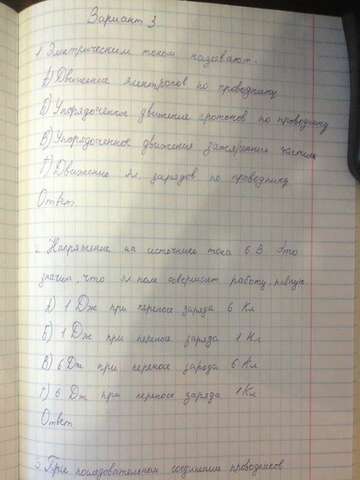 Вариант 3
1. Электрическим током называют.
А) Движение электронов по проводнику
Б) Упорядоченное движение протонов по проводнику
В) Упорядоченное движения заряженных частиц
Г) Движение эл. зарядов по проводнику
Ответ
2. Напряжение на источнике тока 6 В Это
значит, что эл поле совершит работу, равную
А) 1 Дж при переносе заряда 6 Кл
Б) 1 Дж при переносе заряда 1 Кл
В) 6 Дж при переносе заряда 6 Кл
Г) 6 Дж при переносе заряда 1 Кл
Ответ
3. При последовательном соединение проводников